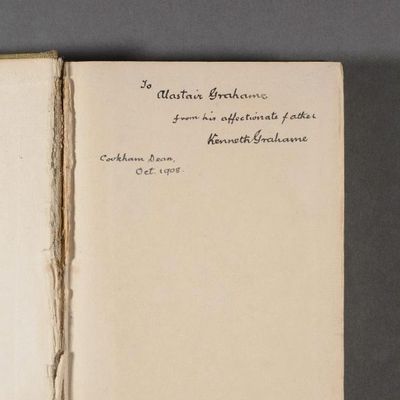 To
Alastair Grahame
from his affectionate father
Kenneth Grahame
Cookham Dean,
Oct. 1908.